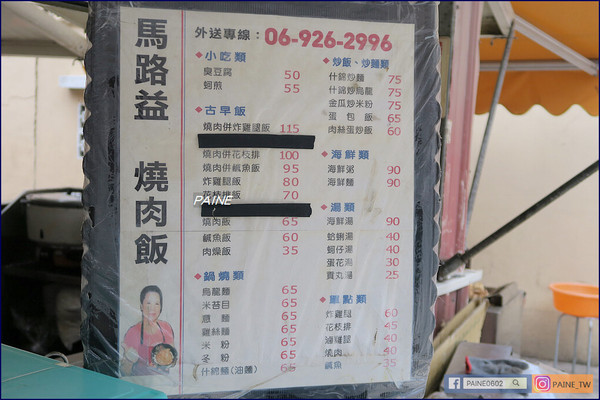 馬路益 燒肉飯
外送專線：06-926-2996
小吃類
臭豆腐 50
蚵煎 55
古早飯
燒肉併炸雞腿飯 115
燒肉併花枝排 100
燒肉併鹹魚飯 95
炸雞腿飯 80
花枝排飯 70
燒肉飯 65
鹹魚飯 60
肉燥飯 35
鍋燒類
烏龍麵 65
米苔目 65
意麵 65
雞絲麵 65
米粉 65
冬粉 65
什錦麵(油麵) 65
炒飯、炒麵類
什錦炒麵 75
什錦炒烏龍 75
金瓜炒米粉 75
蛋包飯 65
肉絲蛋炒飯 60
海鮮類
海鮮粥 90
海鮮麵 90
湯類
海鮮湯 90
蛤蜊湯 40
蚵仔湯 40
蛋花湯 30
貢丸湯 25
單點類
炸雞腿 60
花枝排 45
滷雞腿 40
燒肉 40
鹹魚 35
PAINE
PAINE0602
PAINE_TW